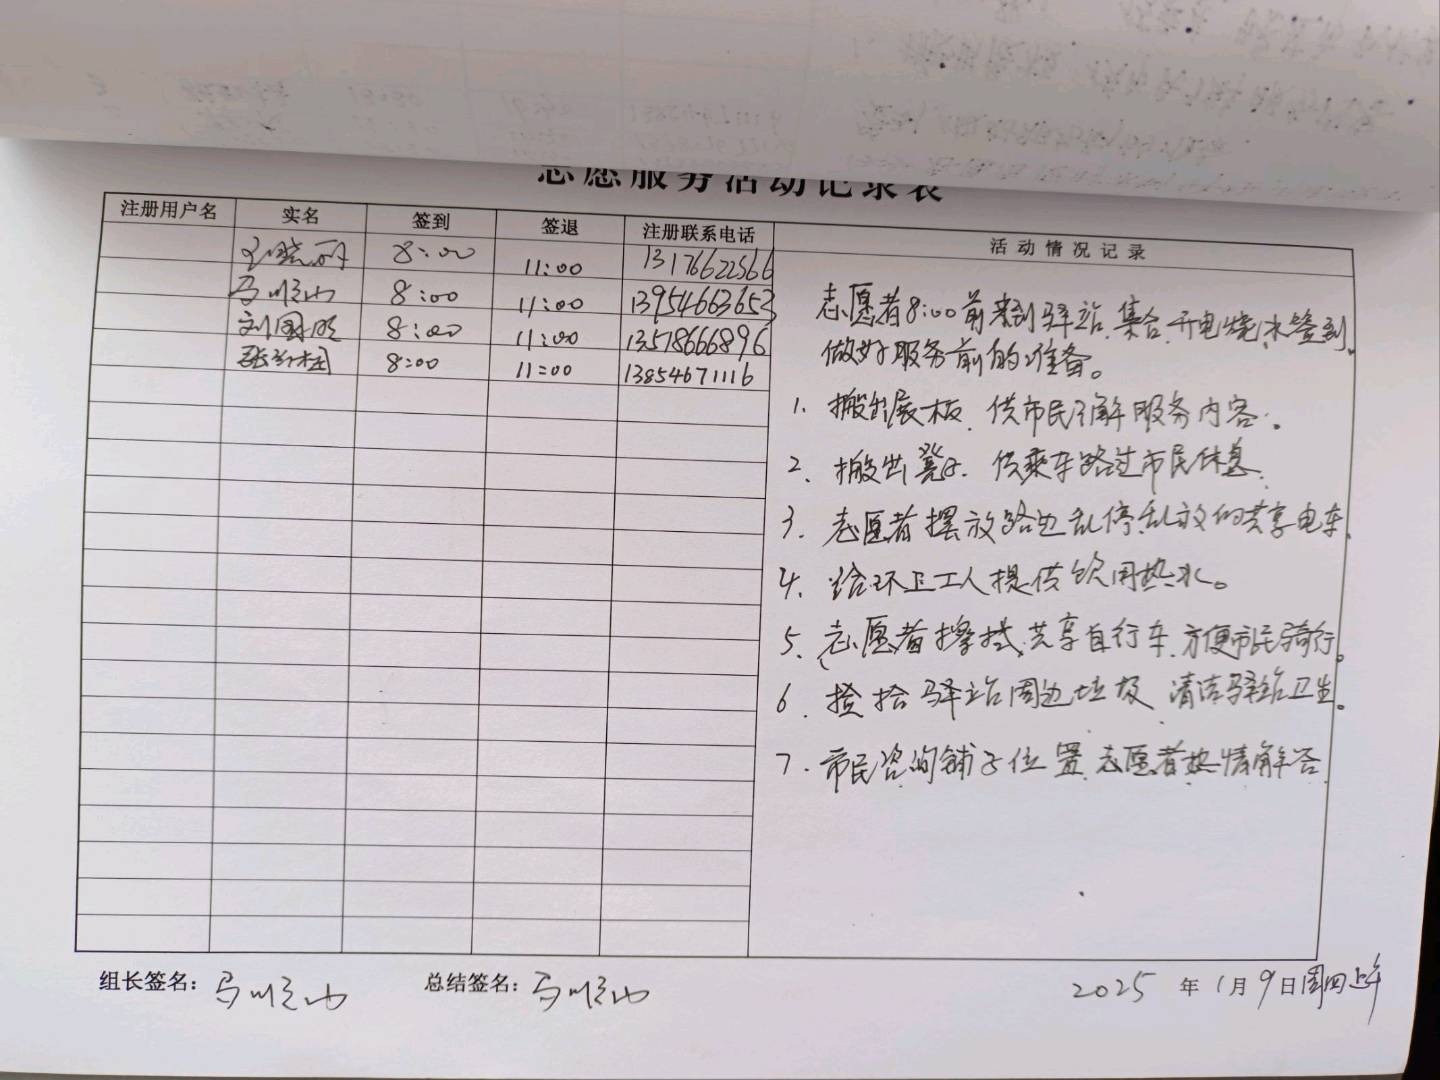 志愿服务活动记录表
注册用户名 实名 签到 签退 注册联系电话 活动情况记录
8:00 11:00 13176622566
马顺山 8:00 11:00 13954663653
刘国 8:00 11:00 13578666896
张 8:00 11:00 13854671116
志愿者8:00前来到驿站集合,开电烧水签到,
做好服务前的准备。
1. 搬出展板,供市民了解服务内容。
2. 搬出凳子,供乘车路过市民休息.
3. 志愿者摆放路边乱停乱放的共享电车.
4. 给环卫工人提供饮用热水。
5. 志愿者擦拭共享自行车,方便市民骑行。
6. 捡拾驿站周边垃圾,清洁驿站卫生。
7. 市民咨询铺子位置,志愿者热情解答
组长签名: 马顺山 总结签名: 马顺山 2025 年 1月 9日周四上午